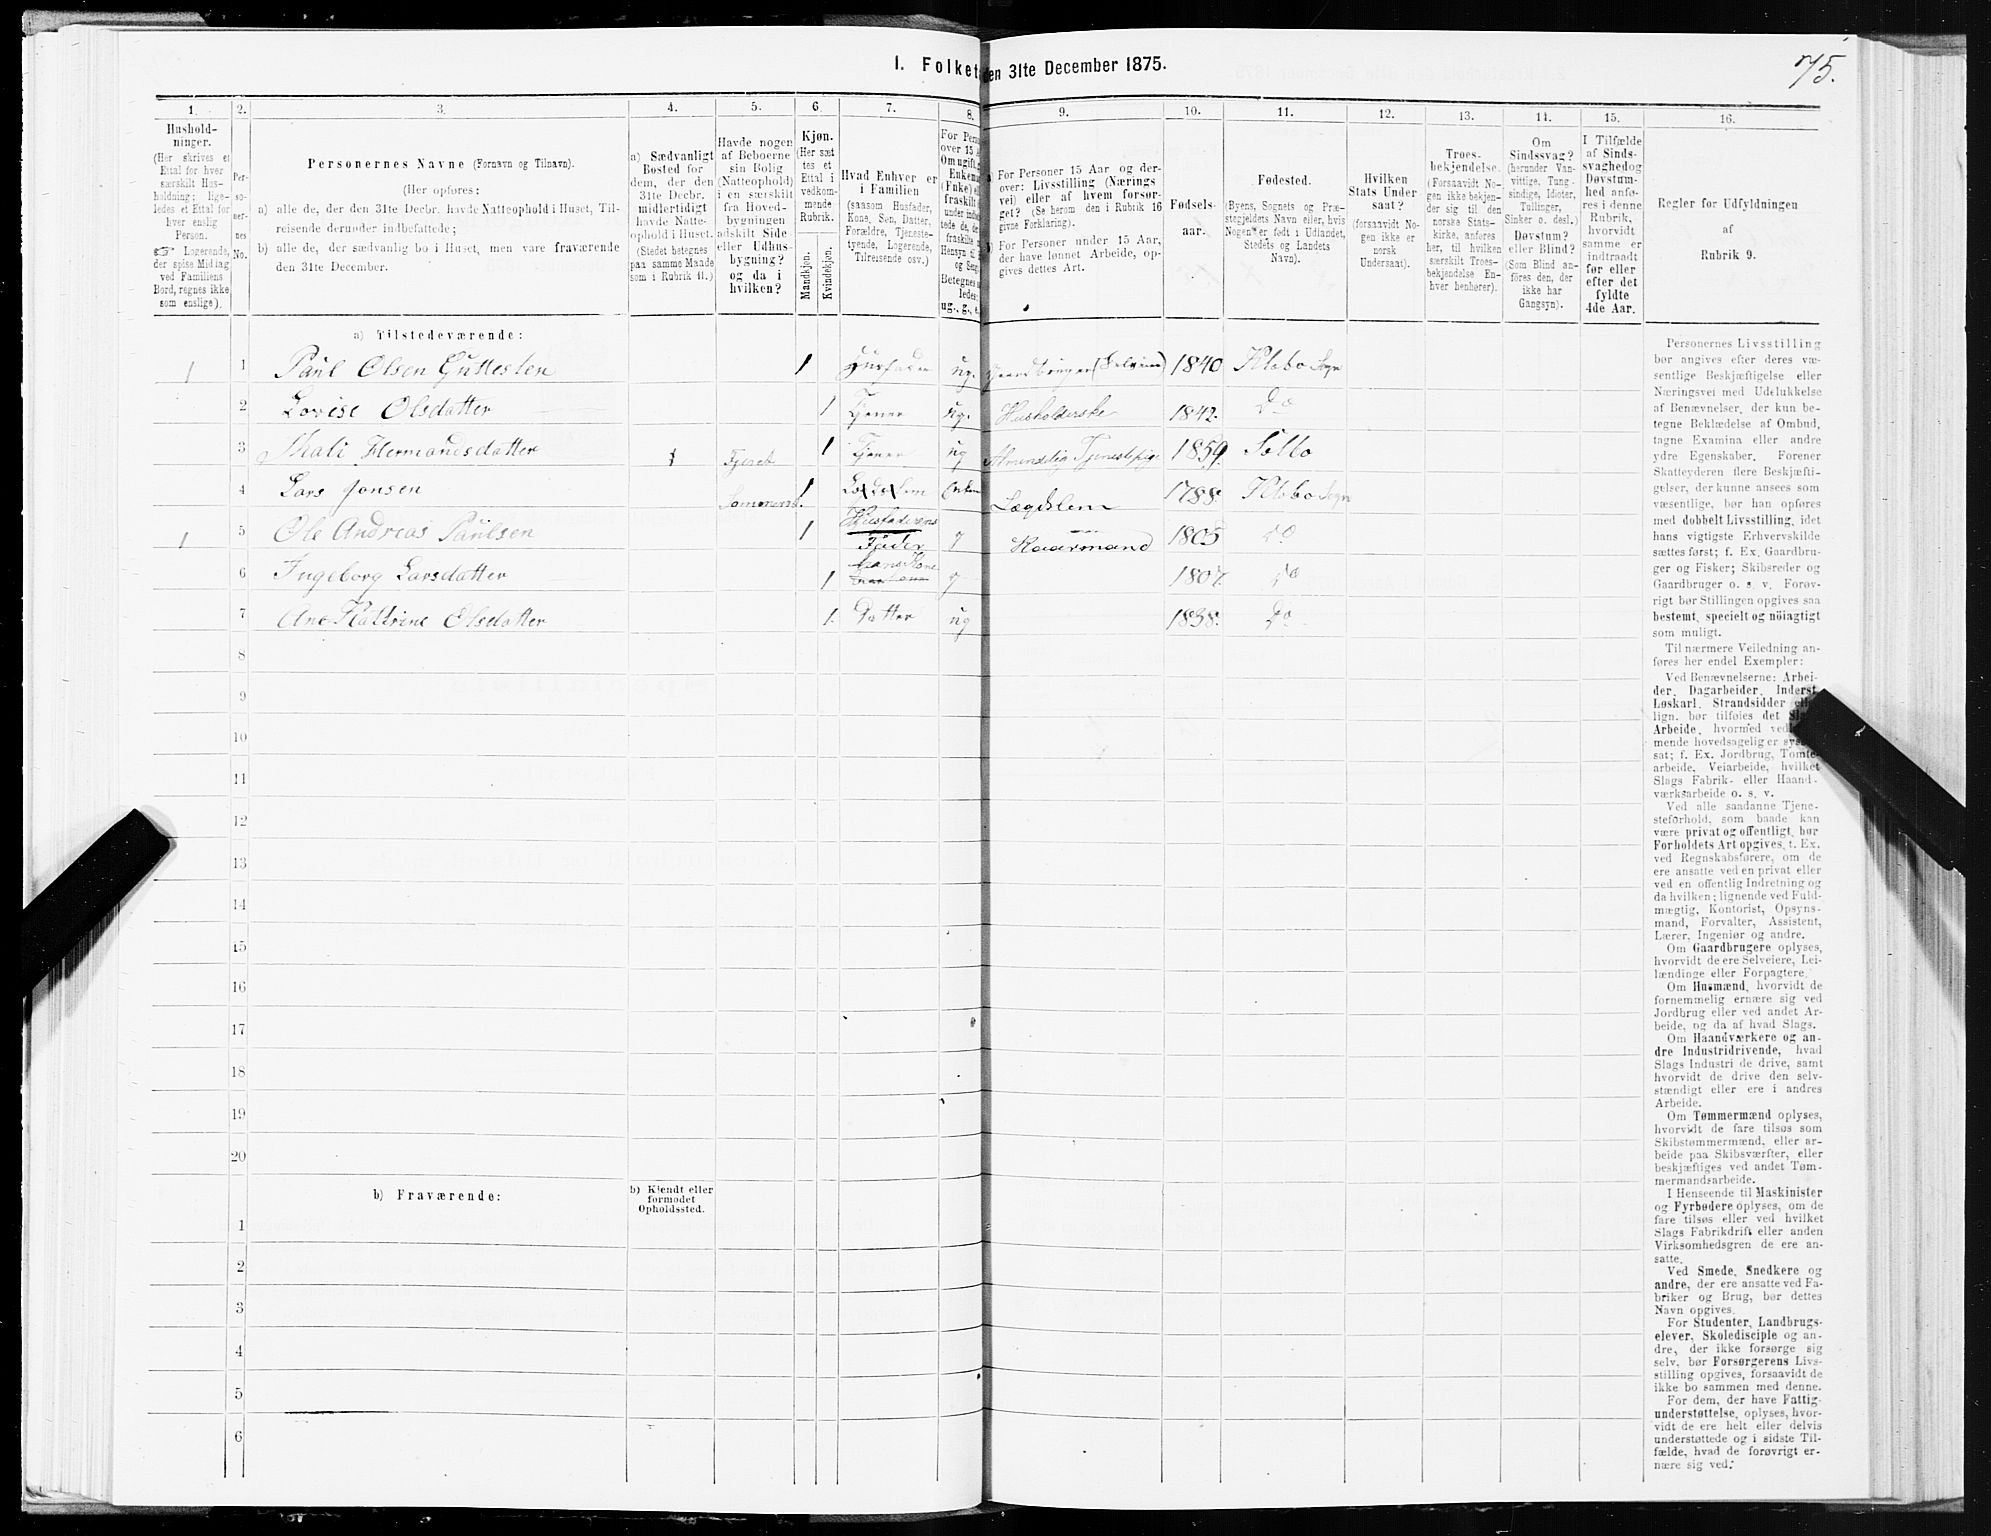 75.
I. Folket
den 31te December 1875.
1. 2. 3. 4. 5. 6. 7. 8. 9. 10. 11. 12. 13. 14. 15. 16.
Hushold-
ninger.
(Her skrives et
Ettal for hver
særskilt Hus-
holdning; lige-
ledes et Ettal for
hver enslig
Person.
☞ Logerende,
der spise Middag
ved Familiens
Bord, regnes ikke
som enslige).
Per-
so-
ner-
nes
No.
Personernes Navne (Fornavn og Tilnavn).
(Her opføres:
a) alle de, der den 31te Decbr. havde Natteophold i Huset, Til-
reisende derunder indbefattede;
b) alle de, der sædvanlig bo i Huset, men vare fraværende
den 31te December.
a) Sædvanligt
Bosted for
dem, der den
31te Decbr.
midlertidigt
havde Natte-
ophold i Huset.
(Stedet betegnes
paa samme Maade
som i Rubrik 11.)
Havde nogen
af Beboerne
sin Bolig
(Natteophold)
i en særskilt
fra Hoved-
bygningen
adskilt Side-
eller Udhus-
bygning?
og da i
hvilken?
Kjøn.
(Her sæt
tes et
Ettal i
vedkom-
mende
Rubrik.
Mandkjøn.
Kvindekjøn.
Hvad Enhver er
i Familien
(saasom Husfader,
Kone, Søn, Datter,
Forældre, Tjeneste-
tyende, Logerende,
Tilreisende osv.)
For Pers
over 15 A
Om ugift,
Enkema
(Enke) el
fraskilt
under indbe
tede de, de
fraskilte
Hensyn til
og Seng.
Betegnes
ledes:
ug., g., e.
a) For Personer 15 Aar og der-
over: Livsstilling (Nærings-
vei) eller af hvem forsør-
get? (Se herom den i Rubrik 16
givne Forklaring).
b) For Personer under 15 Aar,
der have lønnet Arbeide, op-
gives dettes Art.
Fødsels-
aar.
Fødested.
(Byens, Sognets og Præ-
stegjeldets Navn eller, hvis
Nogen er født i Udlandet,
Stedets og Landets
Navn).
Hvilken
Stats Under
saat?
(forsaavidt No-
gen ikke er
norsk
Undersaat).
Troes-
bekjendelse.
(Forsaavidt No-
gen ikke bekjen-
der sig til den
norske Stats-
kirke, anføres
her, til hvilken
særskilt Troes-
bekjendelse En-
hver henhører).
Om
Sindssvag?
(herunder Van-
vittige, Tung-
sindige, Idioter,
Tullinger,
Sinker o. desl.)
Døvstum?
eller Blind?
(Som Blind an-
føres den, der
ikke har
Gangsyn).
I Tilfælde
af Sinds-
svaghed og
Døvstum-
hed anfø-
res i denne
Rubrik,
hvorvidt
samme er
indtraadt
før eller
efter det
fyldte
4de Aar.
Regler for Udfyldningen
af
Rubrik 9.
a) Tilstedeværende:
1 1 Paul Olsen Guttesten 1 Husfader ug. Gaardbruger (Selveier) 1840 Klæbo Sogn
2 Lovise Olsdatter 1 Tjener ug. Husholderske 1842. Do
3 Mali Hermandsdatter 1 Tjener ug Almindelig Tjenestepig 1859. Selbo
4 Lars Jonsen 1 Lægdslem 1788. Klæbo Sogn
1 5 Ole Andreas Paulsen 1 Husfaderens Fader g Kaarmand 1805 Do
6 Ingeborg Larsdatter 1 hans Kone g 1807. Do
7 Ane Kathrine Olsdatter 1. Datter ug 1838. Do
8
9
10
11
12
13
14
15
16
17
18
19
20
b) Fraværende:
b) Kjendt eller
formodet
Opholdssted.
1
2
3
4
5
6
Personernes Livsstilling
bør angives efter deres væ-
sentlige Beskjæftigelse eller
Næringsvei med Udelukkelse
af Benævnelser, der kun be-
tegne Beklædelse af Ombud,
tagne Examina eller andre
ydre Egenskaber. Forener
Skatteyderen flere Beskjæfti-
gelser, der kunne ansees som
væsentlige, bør han opføres
med dobbelt Livsstilling, idet
hans vigtigste Erhvervskilde
sættes først; f. Ex. Gaardbru-
ger og Fisker; Skibsreder og
Gaardbruger o. s. v. Forøv-
rigt bør Stillingen opgives saa
bestemt, specielt og nöiagtigt
som muligt.
Til nærmere Veiledning an-
føres her endel Exempler:
Ved Benævnelserne: Arbei-
der, Dagarbeider, Inderst,
Løskarl, Strandsidder
lign. bør tilføies det
Arbeide, hvormed
mende hovedsagelig er
sat; f. Ex. Jordbrug, Tomte-
arbeide, Veiarbeide, hvilket
Slags Fabrik- eller Haand-
værksarbeide o. s. v.
Ved alle saadanne Tjene-
steforhold, som baade kan
være privat og offentligt, bør
Forholdets Art opgives, f. Ex.
ved Regnskabsførere, om de
ere ansatte ved en privat eller
ved en offentlig Indretning og
da hvilken; lignende ved Fuld-
mægtig, Kontorist, Opsyns-
mand, Forvalter, Assistent,
Lærer, Ingeniør og andre.
Om Gaardbrugere oplyses,
hvorvidt de ere Selveiere, Lei-
lændinge eller Forpagtere.
Om Husmænd, hvorvidt de
fornemmelig ernære sig ved
Jordbrug eller ved andet Ar-
beide, og da af hvad Slags.
Om Haandværkere og an-
dre Industridrivende, hvad
Slags Industri de drive, samt
hvorvidt de drive den selv-
stændigt eller ere i andres
Arbeide.
Om Tømmermænd oplyses,
hvorvidt de fare tilsøs som
Skibstømmermænd, eller ar-
beide paa Skibsværfter, eller
beskjæftiges ved andet Tøm-
mermandsarbeide.
I Henseende til Maskinister
og Fyrbødere oplyses, om de
fare tilsøs eller ved hvilket
Slags Fabrikdrift eller anden
Virksomhedsgren de ere an-
satte.
Ved Smede, Snedkere og
andre, der ere ansatte ved Fa-
briker og Brug, bør dettes
Navn opgives.
For Studenter, Landbrugs-
elever, Skoledisciple og an-
dre, der ikke forsørge sig
selv, bør Forsørgerens Livs-
stilling opgives, forsaavidt de
ikke bo sammen med denne.
For dem, der have Fattig-
understøttelse, oplyses, hvor-
vidt de ere helt eller delvis
understøttede og i sidste Til-
fælde, hvad de forøvrigt er-
nære sig ved.